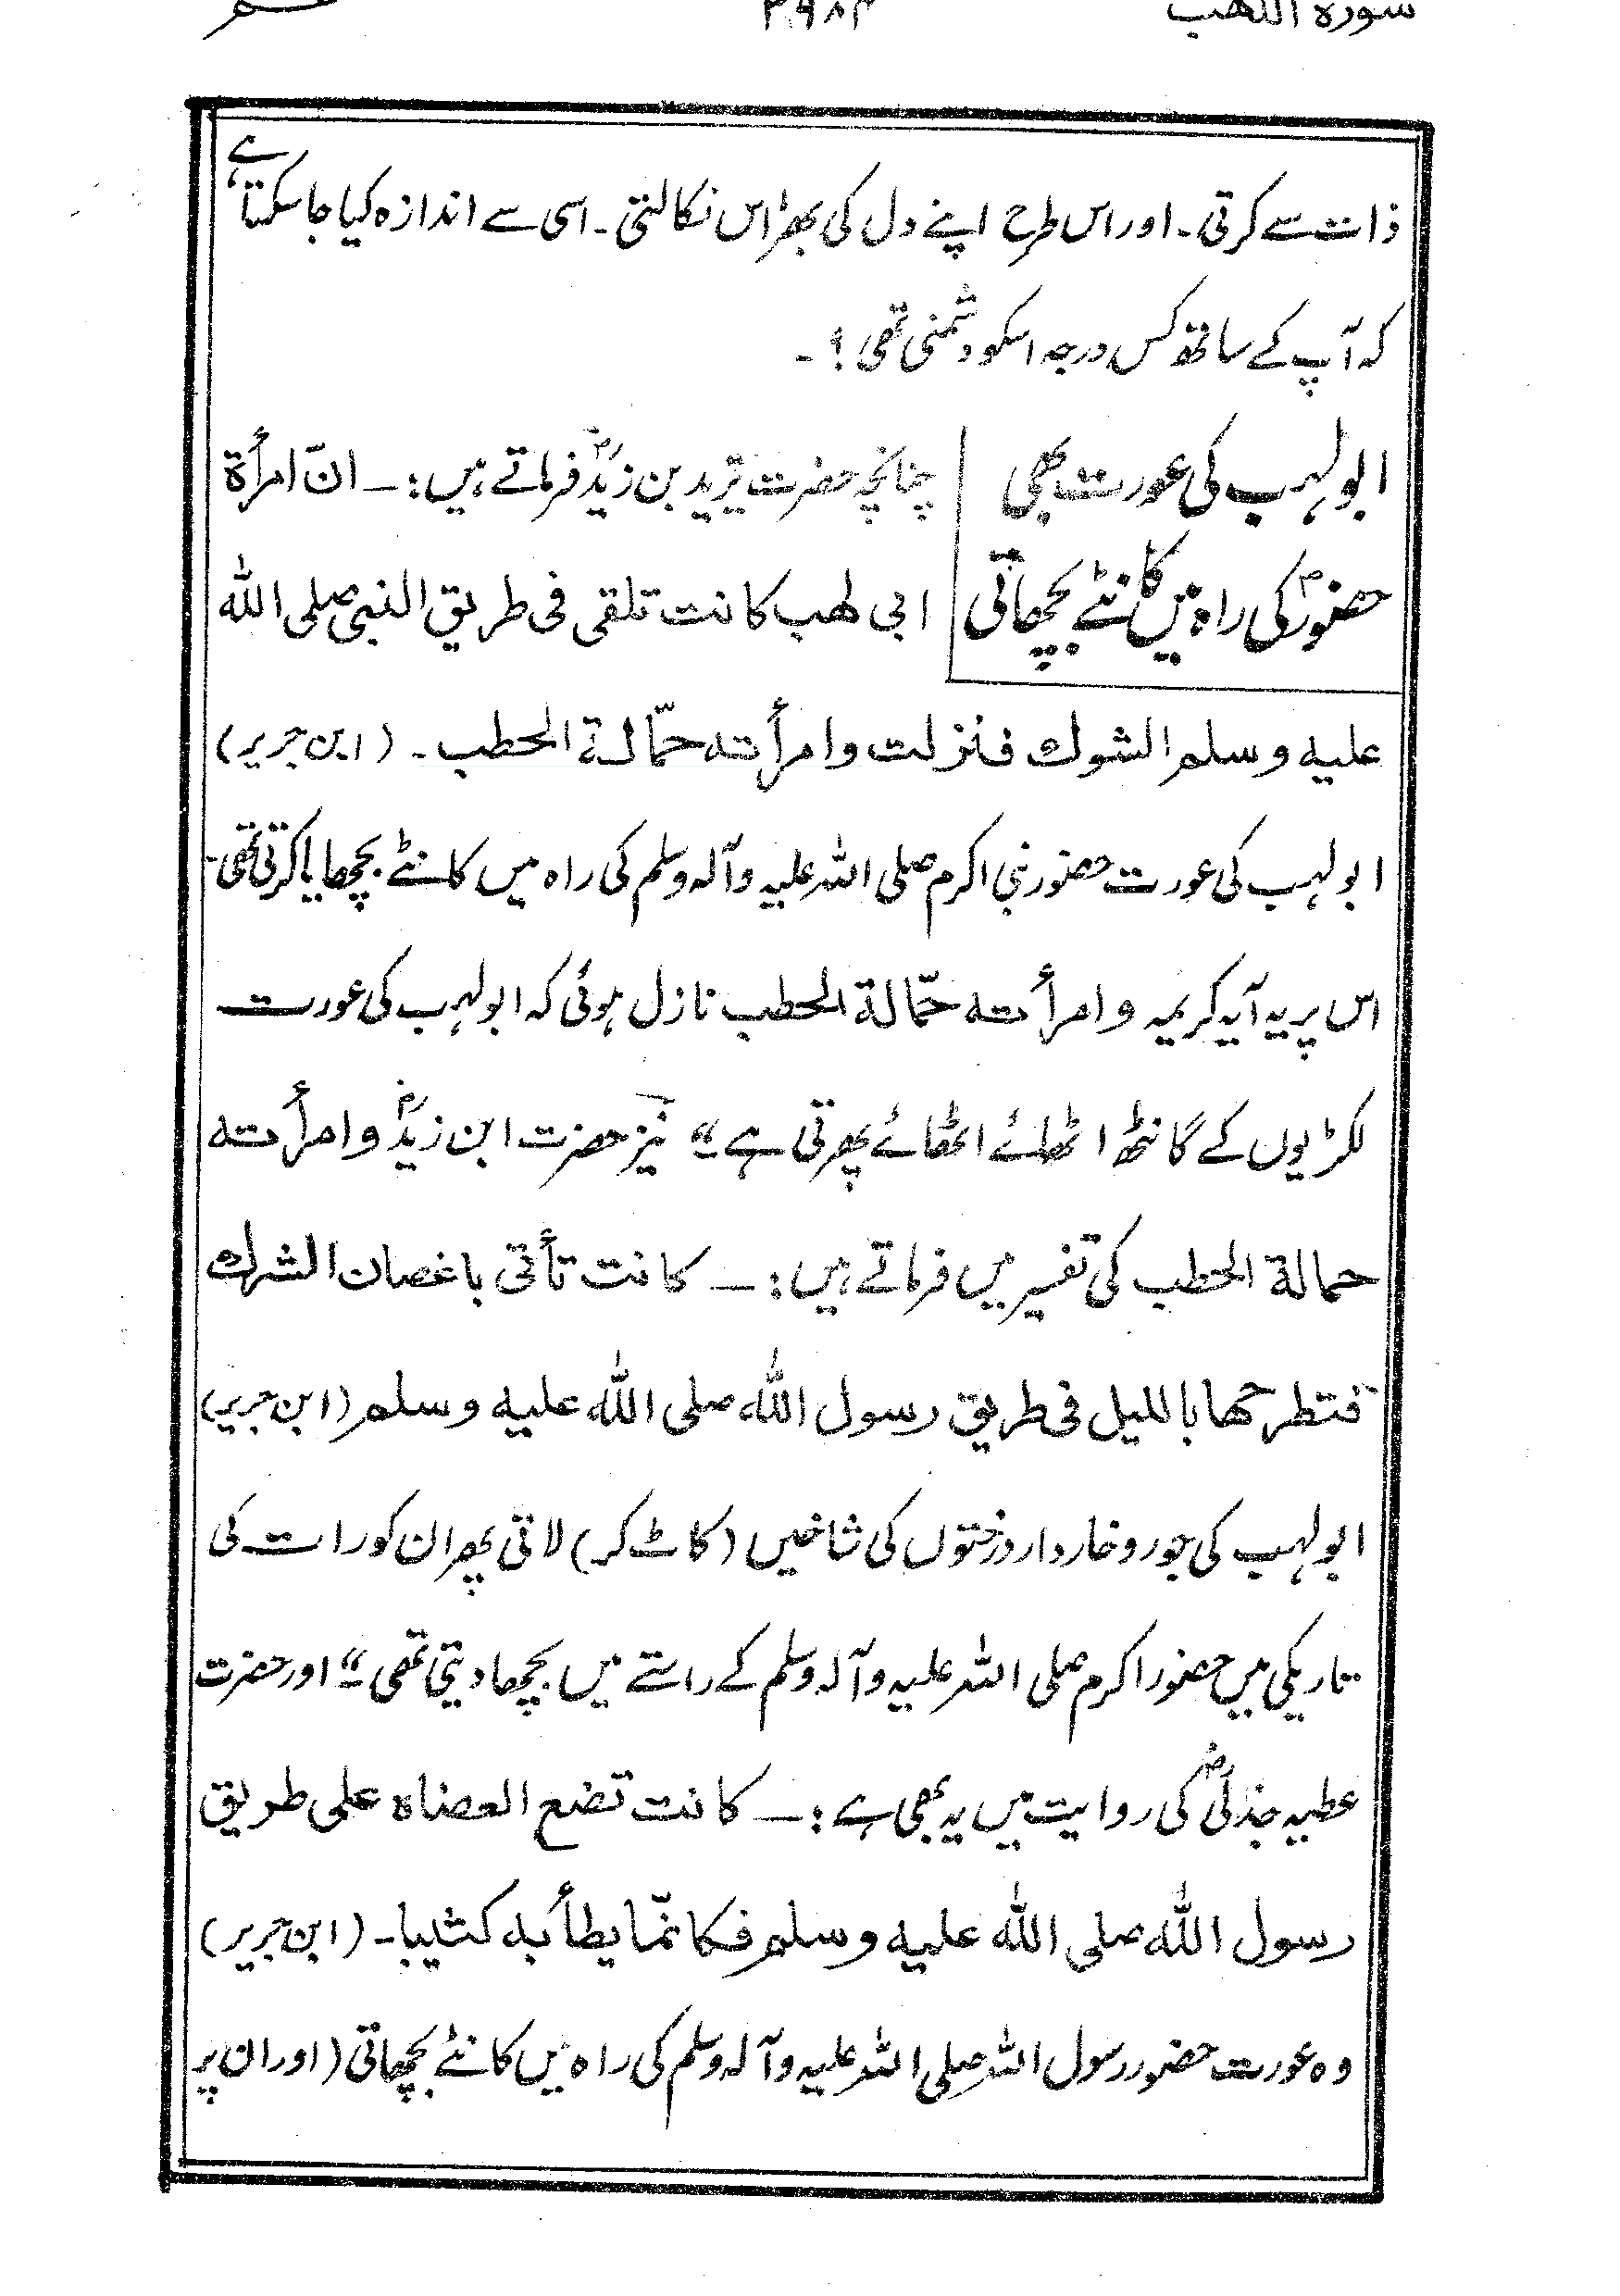 سورہ اللھب
ذات سے کرتی۔ اور اس طرح اپنے دل کی بھڑاس نکالتی۔ اسی سے اندازہ کیا جا سکتا ہے
کہ آپ کے ساتھ کس درجہ اسکو دشمنی تھی؟۔
ابولہب کی عورت بھی
حضورؐ کی راہ میں کانٹے بچھاتی
چنانچہ حضرت یزید بن زیدؓ فرماتے ہیں:۔ انّ امرأة
ابی لھب کانت تلقی فی طریق النبی صلی اللہ
علیہ وسلم الشوك فنزلت وامرأتہ حمّالة الحطب۔ (ابن جریر)
ابولہب کی عورت حضور نبی اکرم صلی اللہ علیہ وآلہ وسلم کی راہ میں کانٹے بچھایا کرتی تھی۔
اس پر یہ آیہ کریمہ وامرأتہ حمّالة الحطب نازل ہوئی کہ ابولہب کی عورت
لکڑیوں کے گانٹھ اٹھائے اٹھائے پھرتی ہے“ نیز حضرت ابن زیدؓ وامرأتہ
حمالة الحطب کی تفسیر میں فرماتے ہیں:۔ کانت تأتی باغصان الشوك
فتطرحھا باللیل فی طریق رسول اللہ صلی اللہ علیہ وسلم (ابن جریر)
ابولہب کی جورو خاردار درختوں کی شاخیں (کاٹ کر) لاتی پھر ان کو رات کی
تاریکی میں حضور اکرم صلی اللہ علیہ وآلہ وسلم کے راستے میں بچھا دیتی تھی“ اور حضرت
عطیہ جذلیؓ کی روایت میں یہ بھی ہے:۔ کانت تضع العضاہ علی طریق
رسول اللہ صلی اللہ علیہ وسلم فکانّما یطأ بہ کثیبا۔ (ابن جریر)
وہ عورت حضور رسول اللہ صلی اللہ علیہ وآلہ وسلم کی راہ میں کانٹے بچھاتی (اور ان پر